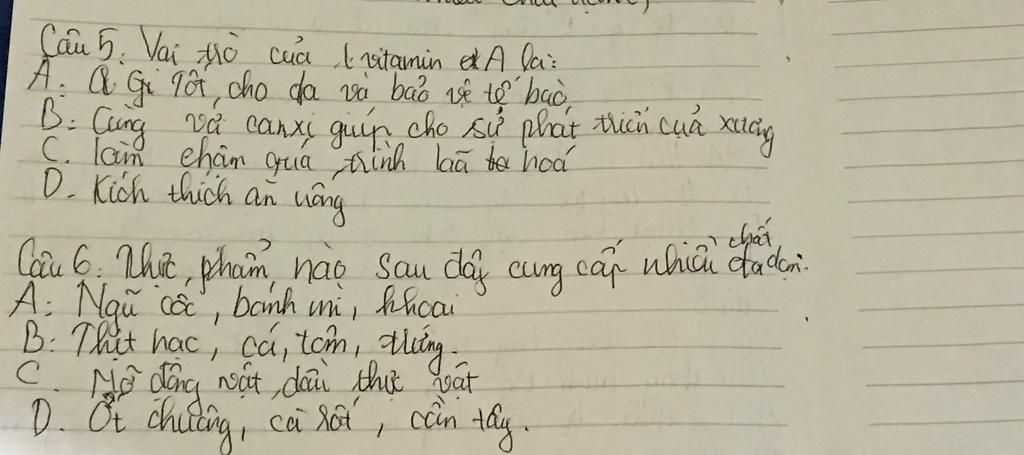 Câu 5: Vai trò của vitamin A là:
A: Gi tốt, cho da và bảo vệ tế bào
B: Cùng và canxi giúp cho sự phát triển của xương
C. làm chậm quá trình lã hoá
D. Kích thích ăn uống
Câu 6. Thực phẩm nào sau đây cung cấp nhiều chất đạm.
A: Ngũ cốc, bánh mì, khoai
B: Thịt nạc, cá, tôm, trứng.
C. Mỡ động vật, dầu thực vật
D. Ớt chuông, cà rốt, cần tây.